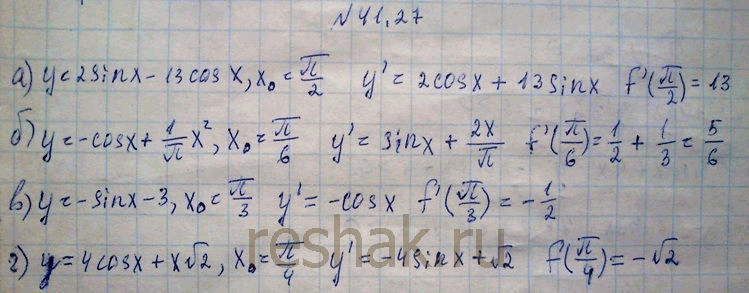 №41.27
а) y=2sinx-13cosx, x₀=π/2 y'=2cosx+13sinx f'(π/2)=13
б) y=-cosx+1/π x², x₀=π/6 y'=sinx+2x/π f'(π/6)=1/2+1/3=5/6
в) y=-sinx-3, x₀=π/3 y'=-cosx f'(π/3)=-1/2
г) y=4cosx+x√2, x₀=π/4 y'=-4sinx+√2 f(π/4)=-√2
reshak.ru